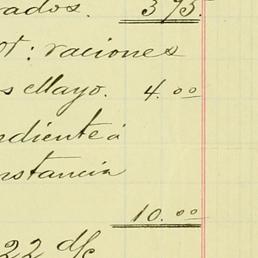 rados. 395.
ot: raciones
s Mayo. 4.00
ndiente á
nstancia
10.00
22 d/c